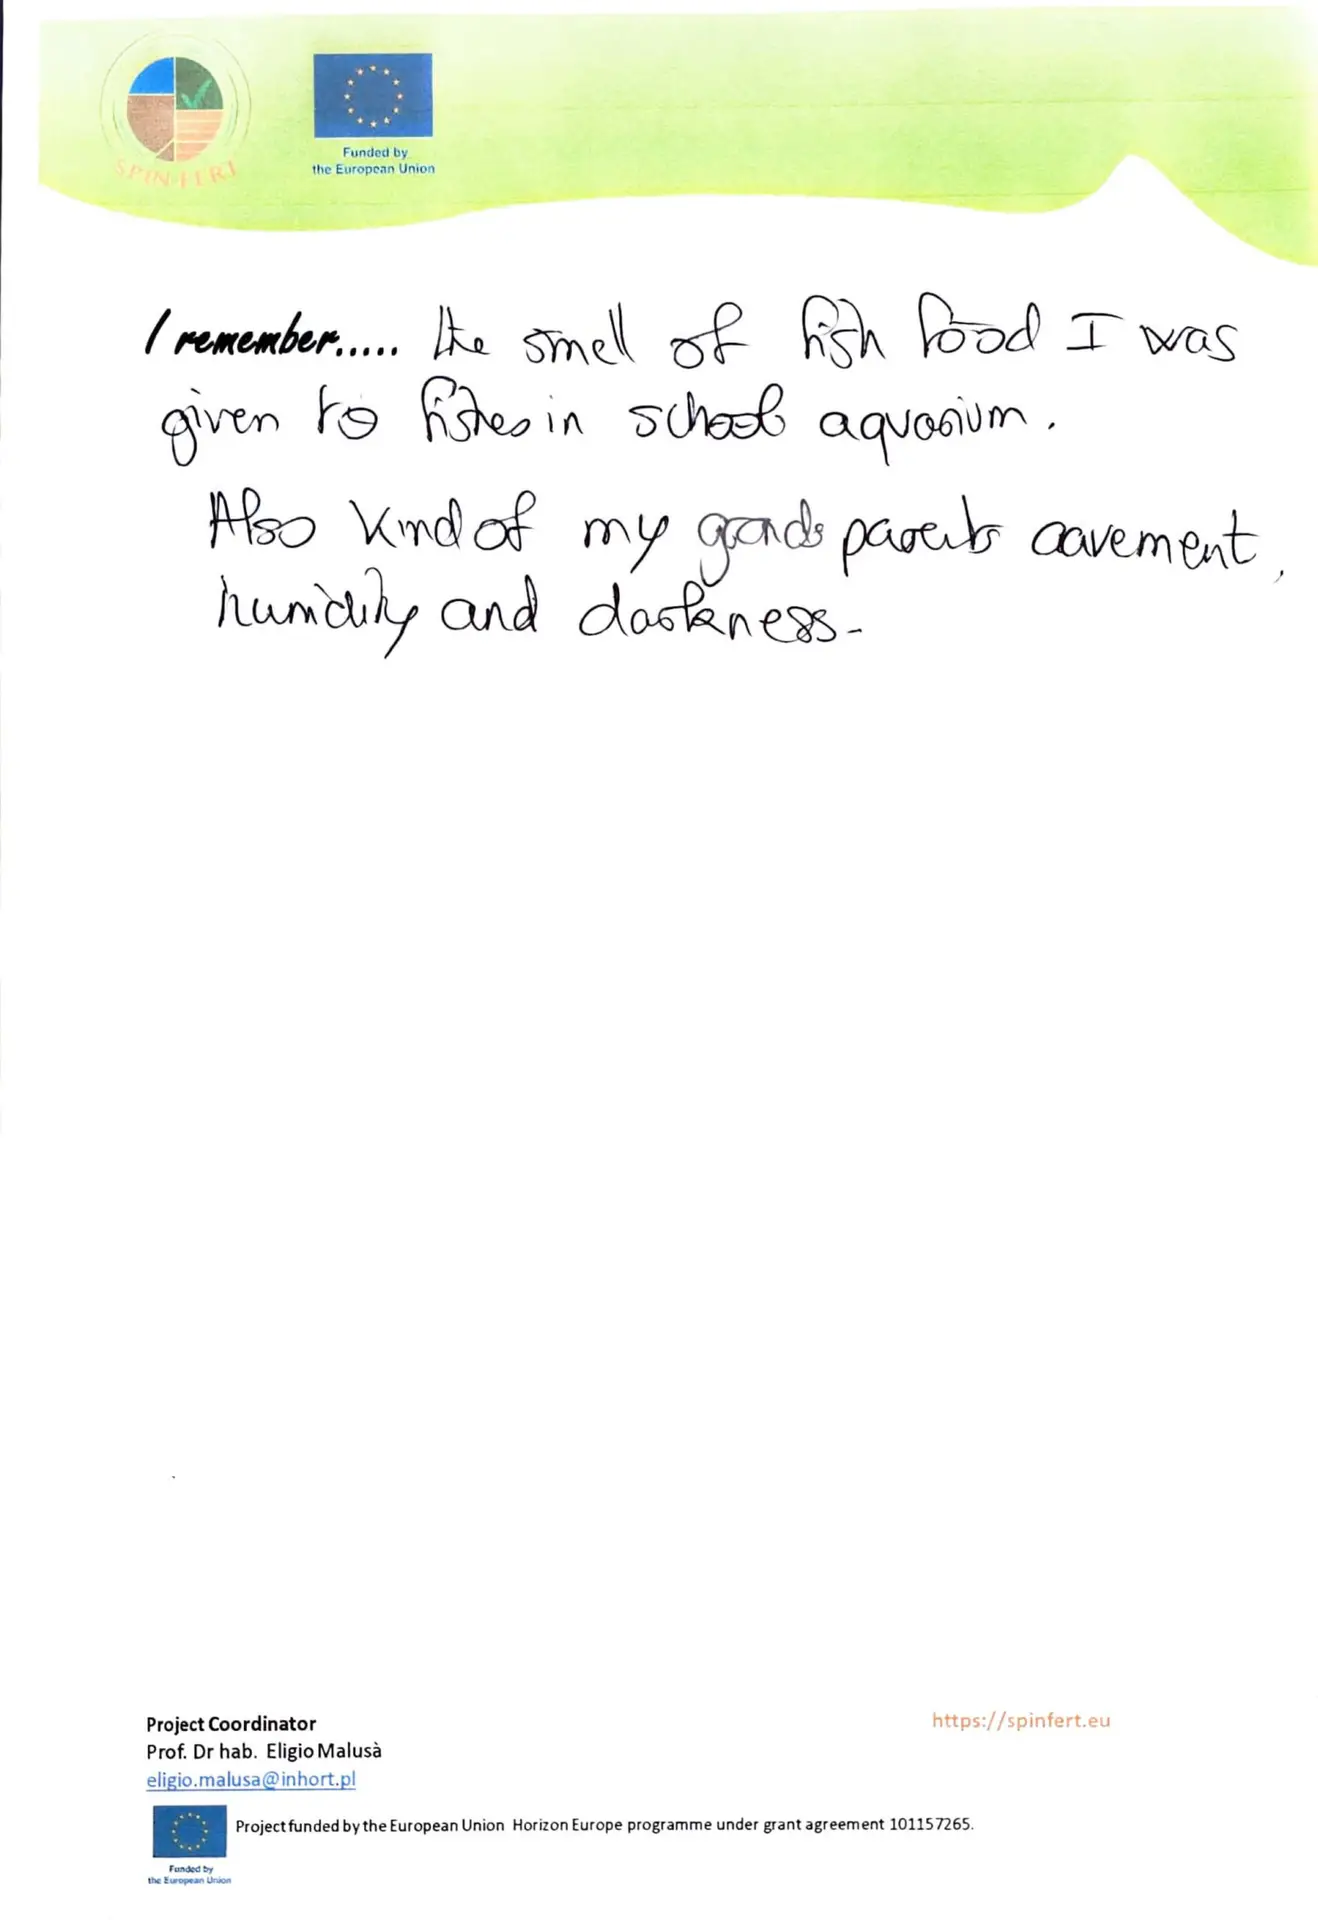 SPIN-FERT
Funded by
the European Union
I remember..... the smell of fish food I was
given to fishes in school aquarium.
Also kind of my grands parents cavement,
humidity and darkness-
Project Coordinator
Prof. Dr hab. Eligio Malusà
eligio.malusa@inhort.pl
https://spinfert.eu
Project funded by the European Union Horizon Europe programme under grant agreement 101157265.
Funded by
the European Union